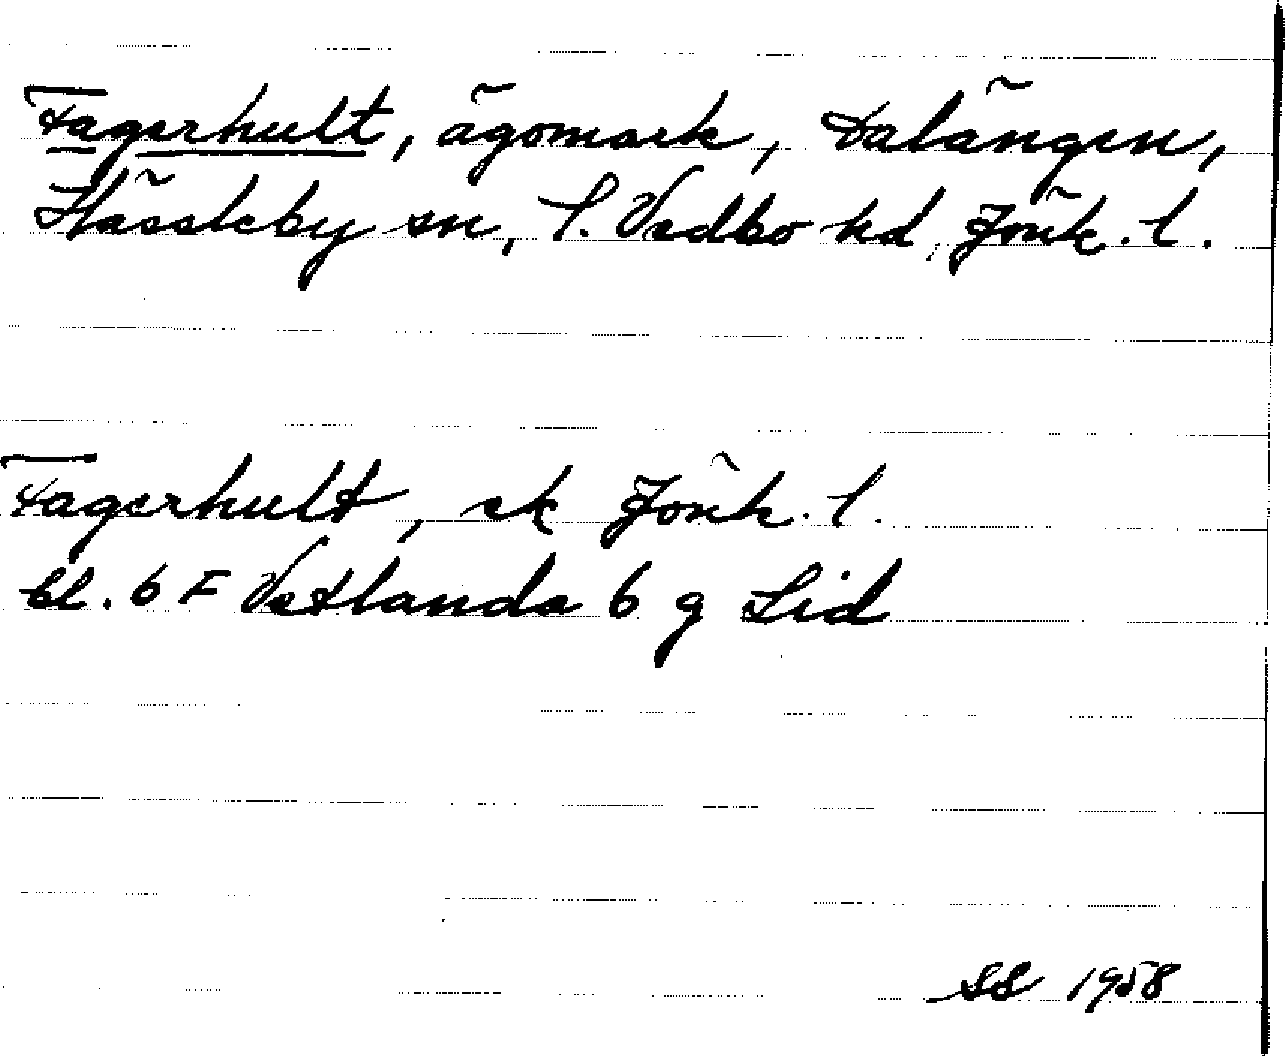 Fagerhult, ägomark, Dalängen,
Hässleby sn, S. Vedbo hd, Jönk. l.
Fagerhult, ek Jönk. l.
bl. 6 F Vetlanda 6 g Lid
SS 1958